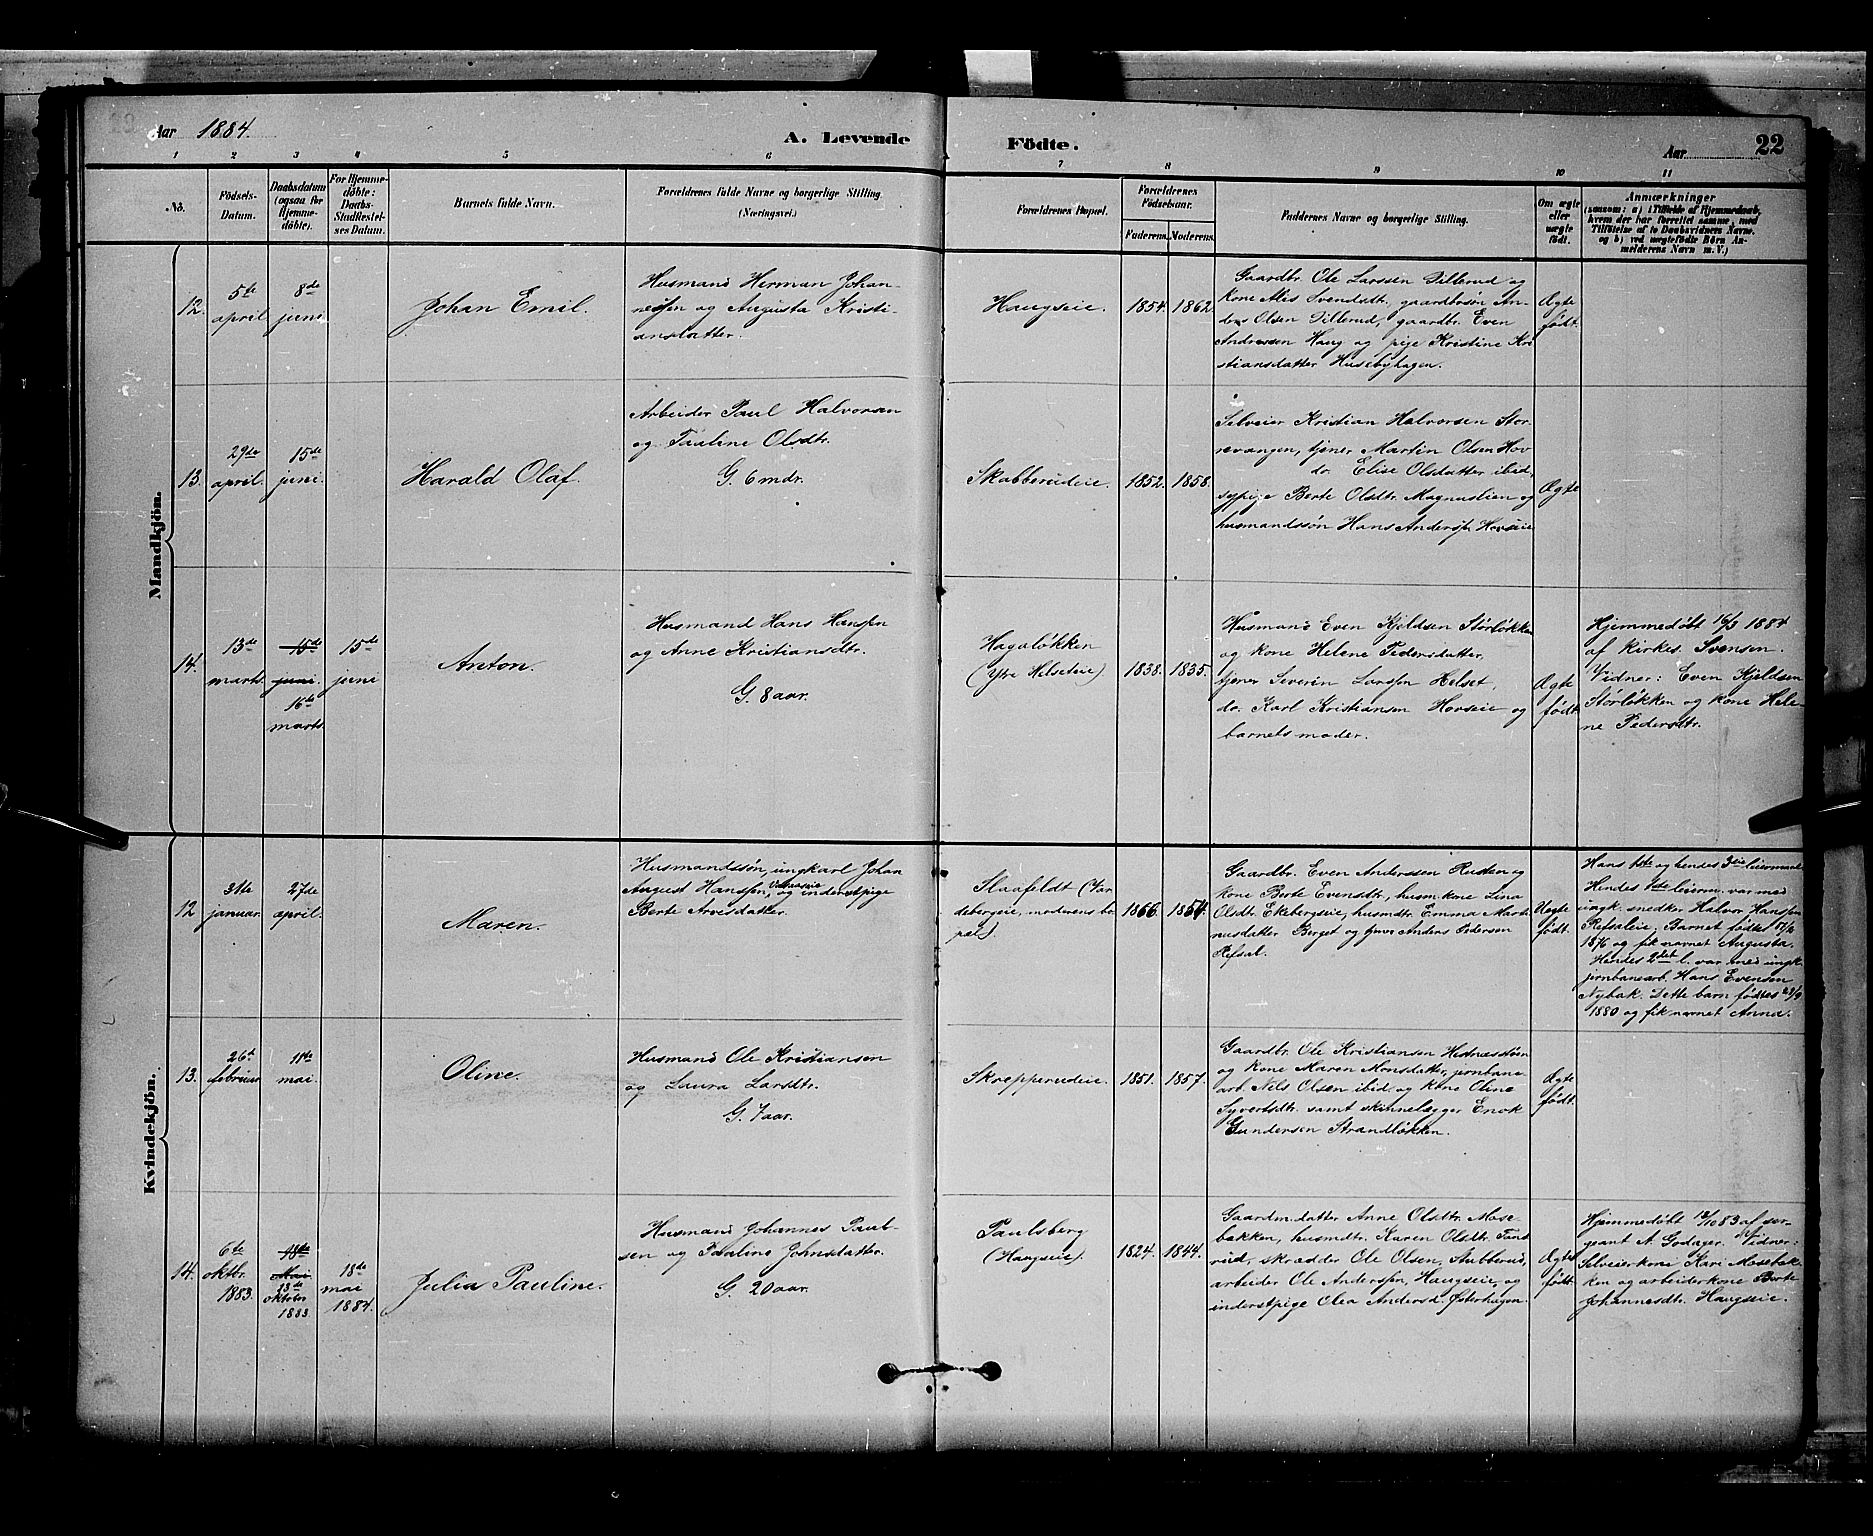 Aar 1884.
A. Levende Födte.
Aar 22
1 2 3 4 5 6 7 8 9 10 11
No.
Födsels-
Datum.
Daabsdatum
(ogsaa for
Hjemme-
döbte).
For Hjemme-
döbte:
Daabs-
Stadfestel-
ses Datum.
Barnets fulde Navn.
Forældrenes fulde Navne og borgerlige Stilling
(Næringsvei.)
Forældrenes Bopæl.
Forældrenes
Födselsaar.
Faderens. Moderens.
Faddernes Navne og borgerlige Stilling.
Om ægte
eller
uægte
födt.
Anmærkninger
(saasom: a) i Tilfælde af Hjemmedaab,
hvem der har forrettet samme, med
Tilföielse af to Daabsvidners Navne,
og b) ved uægtefödte Börn An-
melderens Navn m. V.)
Mandkjön.
12.
5te
april
8de
juni
Johan Emil.
Husmand Herman Johan-
nessen og Augusta Kristi-
ansdatter.
Haugseie.
1854. 1862.
Gaardbr. Ole Larssen Dillerud og
kone Alis Svendsdtr., gaardbrsøn An-
ders Olsen Dillerud, gaardbr. Even
Andreassen Haug og pige Kristine Kri
stiansdatter Husebyhagen.
Ægte
født.
13.
29de
april.
15de
juni.
Harald Olaf.
Arbeider Paul Halvorsen
og Pauline Olsdtr.
G. 6 mdr.
Skabberudeie.
1852. 1858.
Selveier Kristian Halvorsen Stor-
revangen, tjener Martin Olsen Hov
do. Elise Olsdatter ibid,
sypige Berte Olsdtr. Magnuslien og
husmandssøn Hans Andersen Hovseie
Ægte
14.
13de
marts
15de
juni.
16de
marts
15de
juni
Anton.
Husmand Hans Hansen
og Anne Kristiansdtr.
G. 8 aar.
Hagaløkken
(Ytre Helseteie)
1838. 1835.
Husmand Even Kjeldsen Størløkken
og kone Helene Pedersdatter,
tjener Severin Larsen Helset,
do. Karl Kristiansen Hovseie og
barnets moder.
Ægte
født
Hjemmedøbt 16/3 1884
af kirkes. Svensen.
Vidner: Even Kjeldsen
Størløkken og kone Hele-
ne Pedersdtr.
Kvindekjön.
12
31te
januar.
27de
april.
Maren.
Husmandssøn, ungkarl Johan
August Hansen, og inderstpige
Berte Arvesdatter.
Staafeldt (Var
debergeie, moderens bo
pæl).
1866. 1854.
Gaardbr. Even Anderssen Rusten og
kone Berte Evensdtr., husm.kone Lina
Olsdtr. Ekebergseie, husmdtr. Emma Marti
nusdatter Berget og tjener Anders Pedersen
Refsal.
Uægte
født.
Hans 1ste og hendes 3die leiermaal
Hendes 1ste leierm. var med
ungk. snedker Halvor Hanssen
Refsaleie. Barnet fødtes
1876 og fik navnet Augusta.
Hendes 2det l. var med ungk.
jernbanearb. Hans Evensen
Nybak. Dette barn fødtes 23/9
1880 og fik navnet Anna.
13.
26de
februar
11te
mai.
Oline.
Husmand Ole Kristiansen
og Laura Larsdtr.
G. 7 aar.
Skrepperudeie.
1851. 1857.
Gaardbr. Ole Kristiansen Hestnesstøen
og kone Maren Monsdatter, jernbane
arb. Nils Olsen ibid, og kone Oline
Syvertsdtr. samt skinnelægger Enok
Gundersen Strandløkken.
Ægte
født.
14.
6te
oktbr.
1883.
18de
Mai
13de
oktober
1883
18de
mai
1884.
Julia Pauline.
Husmand Johannes Paul-
sen og Pauline Johnsdatter.
G. 20 aar.
Paulsberg
(Haugseie)
1824. 1844.
Gaardm.datter Anne Olsdtr. Mose-
bakken, husmdtr. Karen Olsdtr. Find
rud, skrædder Ole Olsen, Stubberud,
arbeider Ole Anderssen, Haugseie, og
inderstpige Olea Andersd. Østerhagen.
Ægte
født.
Hjemmedøbt 13/10 83 af ser-
geant A. Godager. Vidner:
Selveierkone Kari Mosebak-
ken og arbeiderkone Berte
Johannesdtr. Haugseie.